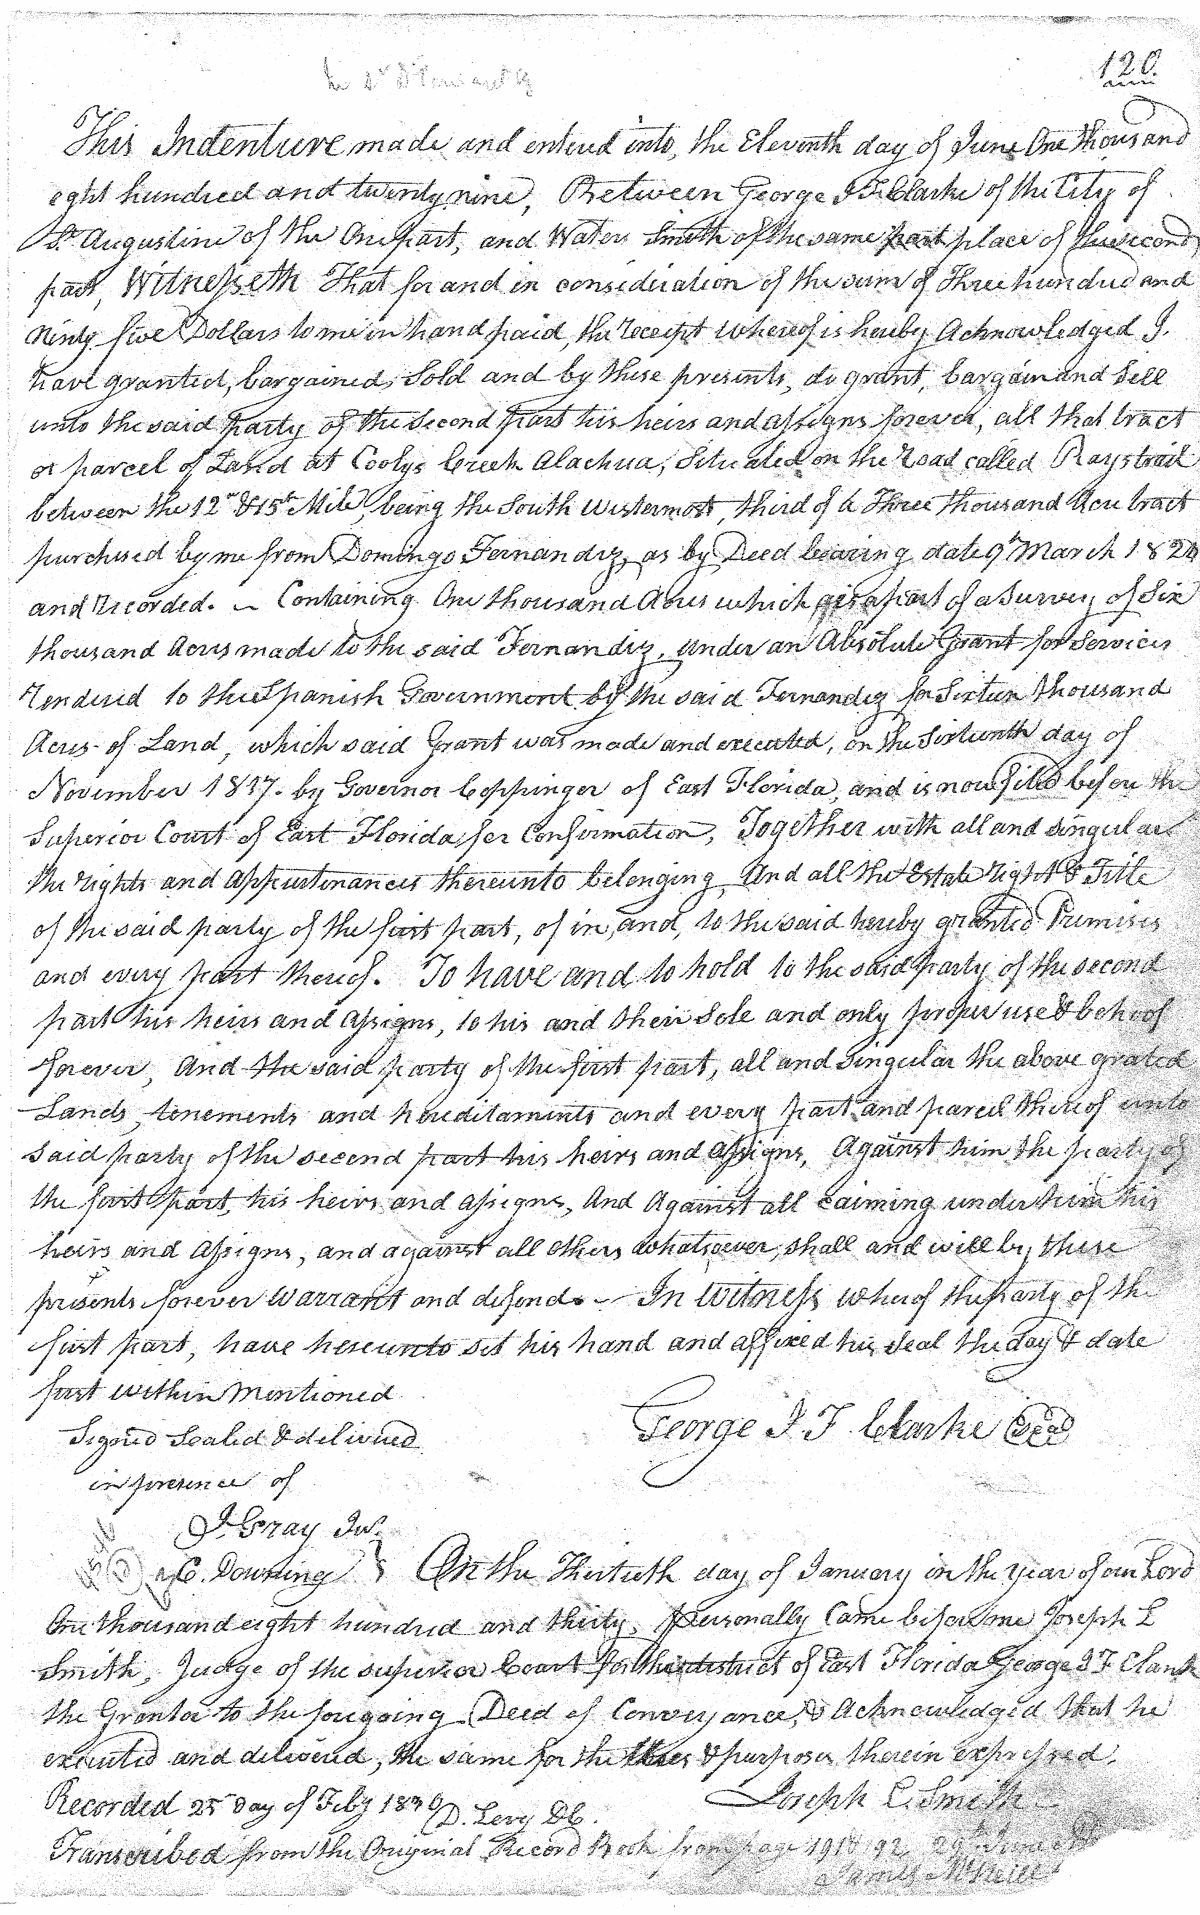 120
This Indenture made and entered into, the Eleventh day of June One thousand
eght hundred and twenty nine, Between George J F Clarke of the City of
St. Augustine of the One part, and Waters Smith of the same part place of the second
part, Witnesseth That for and in consideration of the sum of Three hundred and
Ninty five Dollars to me in hand paid, the receipt whereof is hereby Acknowledged I.
have granted, bargained, Sold and by these presents, do grant, bargain and Sell
unto the said party of the second part his heirs and assigns forever, all that tract
or parcel of Land at Coolys Creek Alachua, Situated on the road called Raystrail
between the 12th & 15th Mile, being the South westermost, third of a Three thousand Acre tract
purchased by me from Domingo Fernandiz, as by Deed bearing date 9th March 182
and recorded. Containing One thousand Acres which is a part of a Survey of Six
thousand Acres made to the said Fernandiz, under an Absolute Grant for Services
rendered to the Spanish Government by the said Fernandiz for Sixteen thousand
Acres of Land, which said Grant was made and executed, on the Sixteenth day of
November 1817. by Governor Coppinger of East Florida, and is now filed before the
Superior Court of East Florida for Confirmation, Together with all and singular
the rights and appurtinances thereunto belonging, And all the Estate right & Title
of the said party of the first part, of in, and, to the said hereby granted Premises
and every part thereof. To have and to hold to the said party of the second
part his heirs and assigns, to his and their Sole and only proper use & behoof
forever, And the said party of the first part, all and singular the above grated
Lands, tenements and hereditaments and every part and parcel thereof unto
said party of the second part his heirs and assigns, Against him the party of
the first part, his heirs and assigns, And Against all caiming under him his
heirs and Assigns, and against all others whatsoever, shall and will by these
presents forever warrant and defend. In witness whereof the party of the
first part, have hereunto set his hand and affixed his Seal the day & date
first within Mentioned
Signed Sealed & delivered George J. F. Clarke Seal
in presence of
J. Gray Jur.
C. Downing } On the Thirtieth day of January in the year of our Lord
One thousand eight hundred and thirty, personally Came before me Joseph L
Smith, Judge of the superior Court for the district of East Florida George J F Clark
the Grantor to the foregoing Deed of Conveyance, & Acknowledged that he
executed and delivered, the same for the Uses & purposes therein expressed.
Joseph L. Smith
Recorded 25 day of Feby 1830 D. Levy DC.
Transcribed from the Original Record Book from page 92 29th June
James McNeill